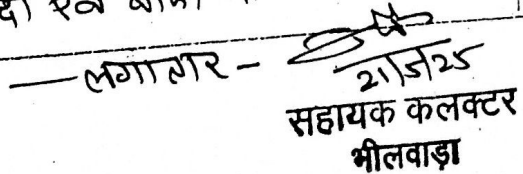 दी एवं
—लगातार-
21/5/25
सहायक कलक्टर
भीलवाड़ा